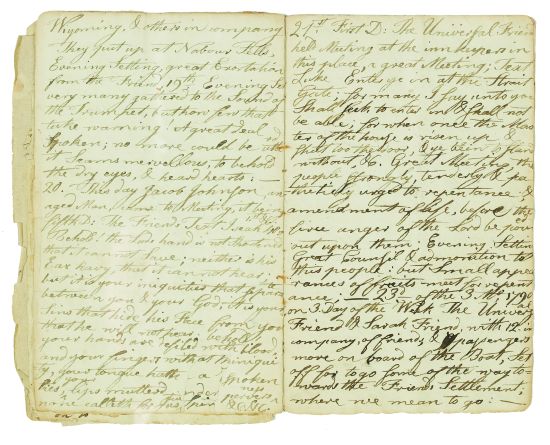 Wyoming, & others in company
They put up at Nations Sells.
Evening Setting, great Exortation
from the Friend 19th Evening Set
very many gathred to the Sound of
the Trumpet, but how few that
take warning. A great Deal
Spoken; no more could be
it Seams mervellous, to behold
the dry eyes, & heard hearts: —
20. This day Jacob Johnson, an
aged Man, came to Meeting, it be
fifth D: The Friends Text Isaah
Behold: the Lords hand is not shortened
that it cannot save; neither is his
Ear heavy, that it cannot hear;
but it is your iniquities that separate
between you & your God; it is your
Sins that hide his Face from you
that he will not hear behold
your hands are defiled with blood:
and your fingers with that iniqui
ty, your tongue hath Spoken
lies, lips muttered
none calleth for
21st First D: The Universal Frien
held Meeting at the inn keepers in
this place, a great Meeting; Text
Luke Enter ye in at the Strait
Gate; for many I say unto you
Shall Seek to enter in & Shall not
be able, for when once the Mas
ter of the house is risen up &
Shut too the door, & ye bein to Stand
without, &c. Great Meeting the
people Strongly, tenderly & pa
thetically urged to repentance &
amendment of life, before the
fierce anger of the Lord be pour
out upon them: Evening Settin
Great Council & admonition to
this people: but Small appea
rances of fruits meet for repent
ance; 23d of the 3.th 1790
on 3 Day of the Week The Univers
Friend & Sarah Friend, with 12 in
company, of friends, & passengers
move on board of the Boat, Set
off for to go Some of the way to
wards the Friends Settlement,
where we mean to go: —